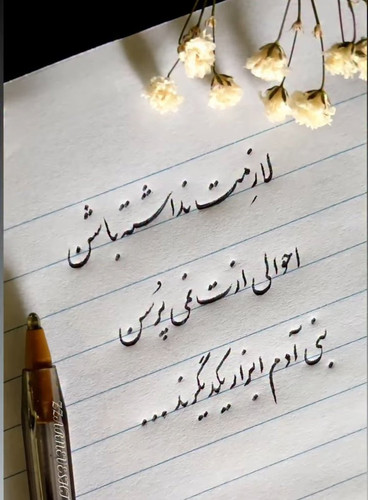 لازمت نداشته باشن
احوالی ازت نمی پرُسن
بنی آدم ابزار یکدیگرند ...